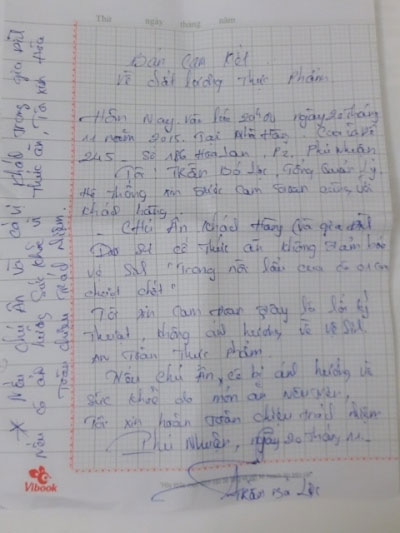 Thứ ngày tháng năm
Bản Cam Kết
Về chất lượng thực phẩm.
Hôm Nay, vào lúc 20h00 ngày 20 tháng
11 năm 2015. Tại Nhà Hàng
245 - Số Hoa Lan, P2. Phú Nhuận
Tôi: Trần Bá Lộc, Tổng Quản Lý.
Hệ thống xin được cam đoan cùng với
khách hàng.
- Chú Ân khách Hàng và gia đình
Do sự cố thức ăn không đảm bảo
về "Trong nồi lẩu của có 01 con
chuột chết".
Tôi xin cam đoan đây là lỗi kỹ
thuật không ảnh hưởng về vệ sinh
An Toàn Thực Phẩm.
Nếu chú Ân, có bị ảnh hưởng về
sức khỏe do món ăn nêu trên,
Tôi xin hoàn toàn chịu trách nhiệm
Phú Nhuận, ngày 20 tháng 11
Trần Bá Lộc
* Nếu Chú Ân và có vị khách trong gia đình
nếu có ảnh hưởng sức khỏe vì thức ăn, Tôi xin hứa
toàn chịu trách nhiệm.
Vibook